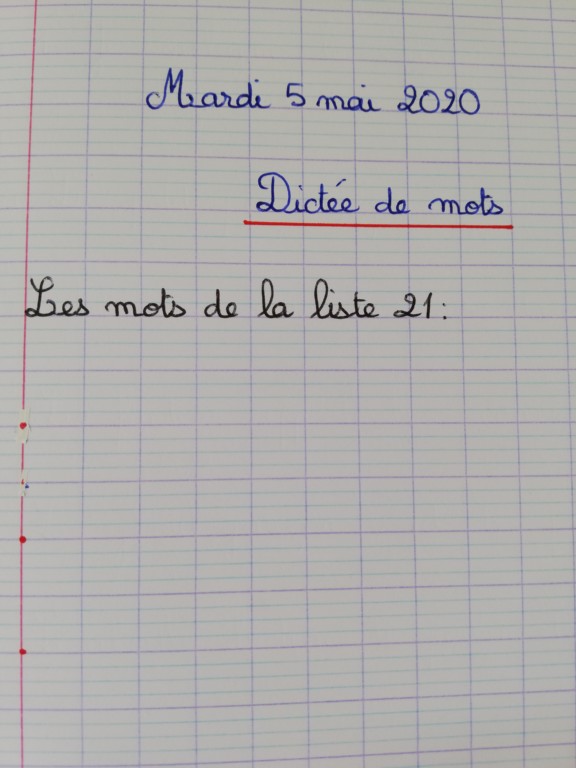 Mardi 5 mai 2020
Dictée de mots
Les mots de la liste 21: